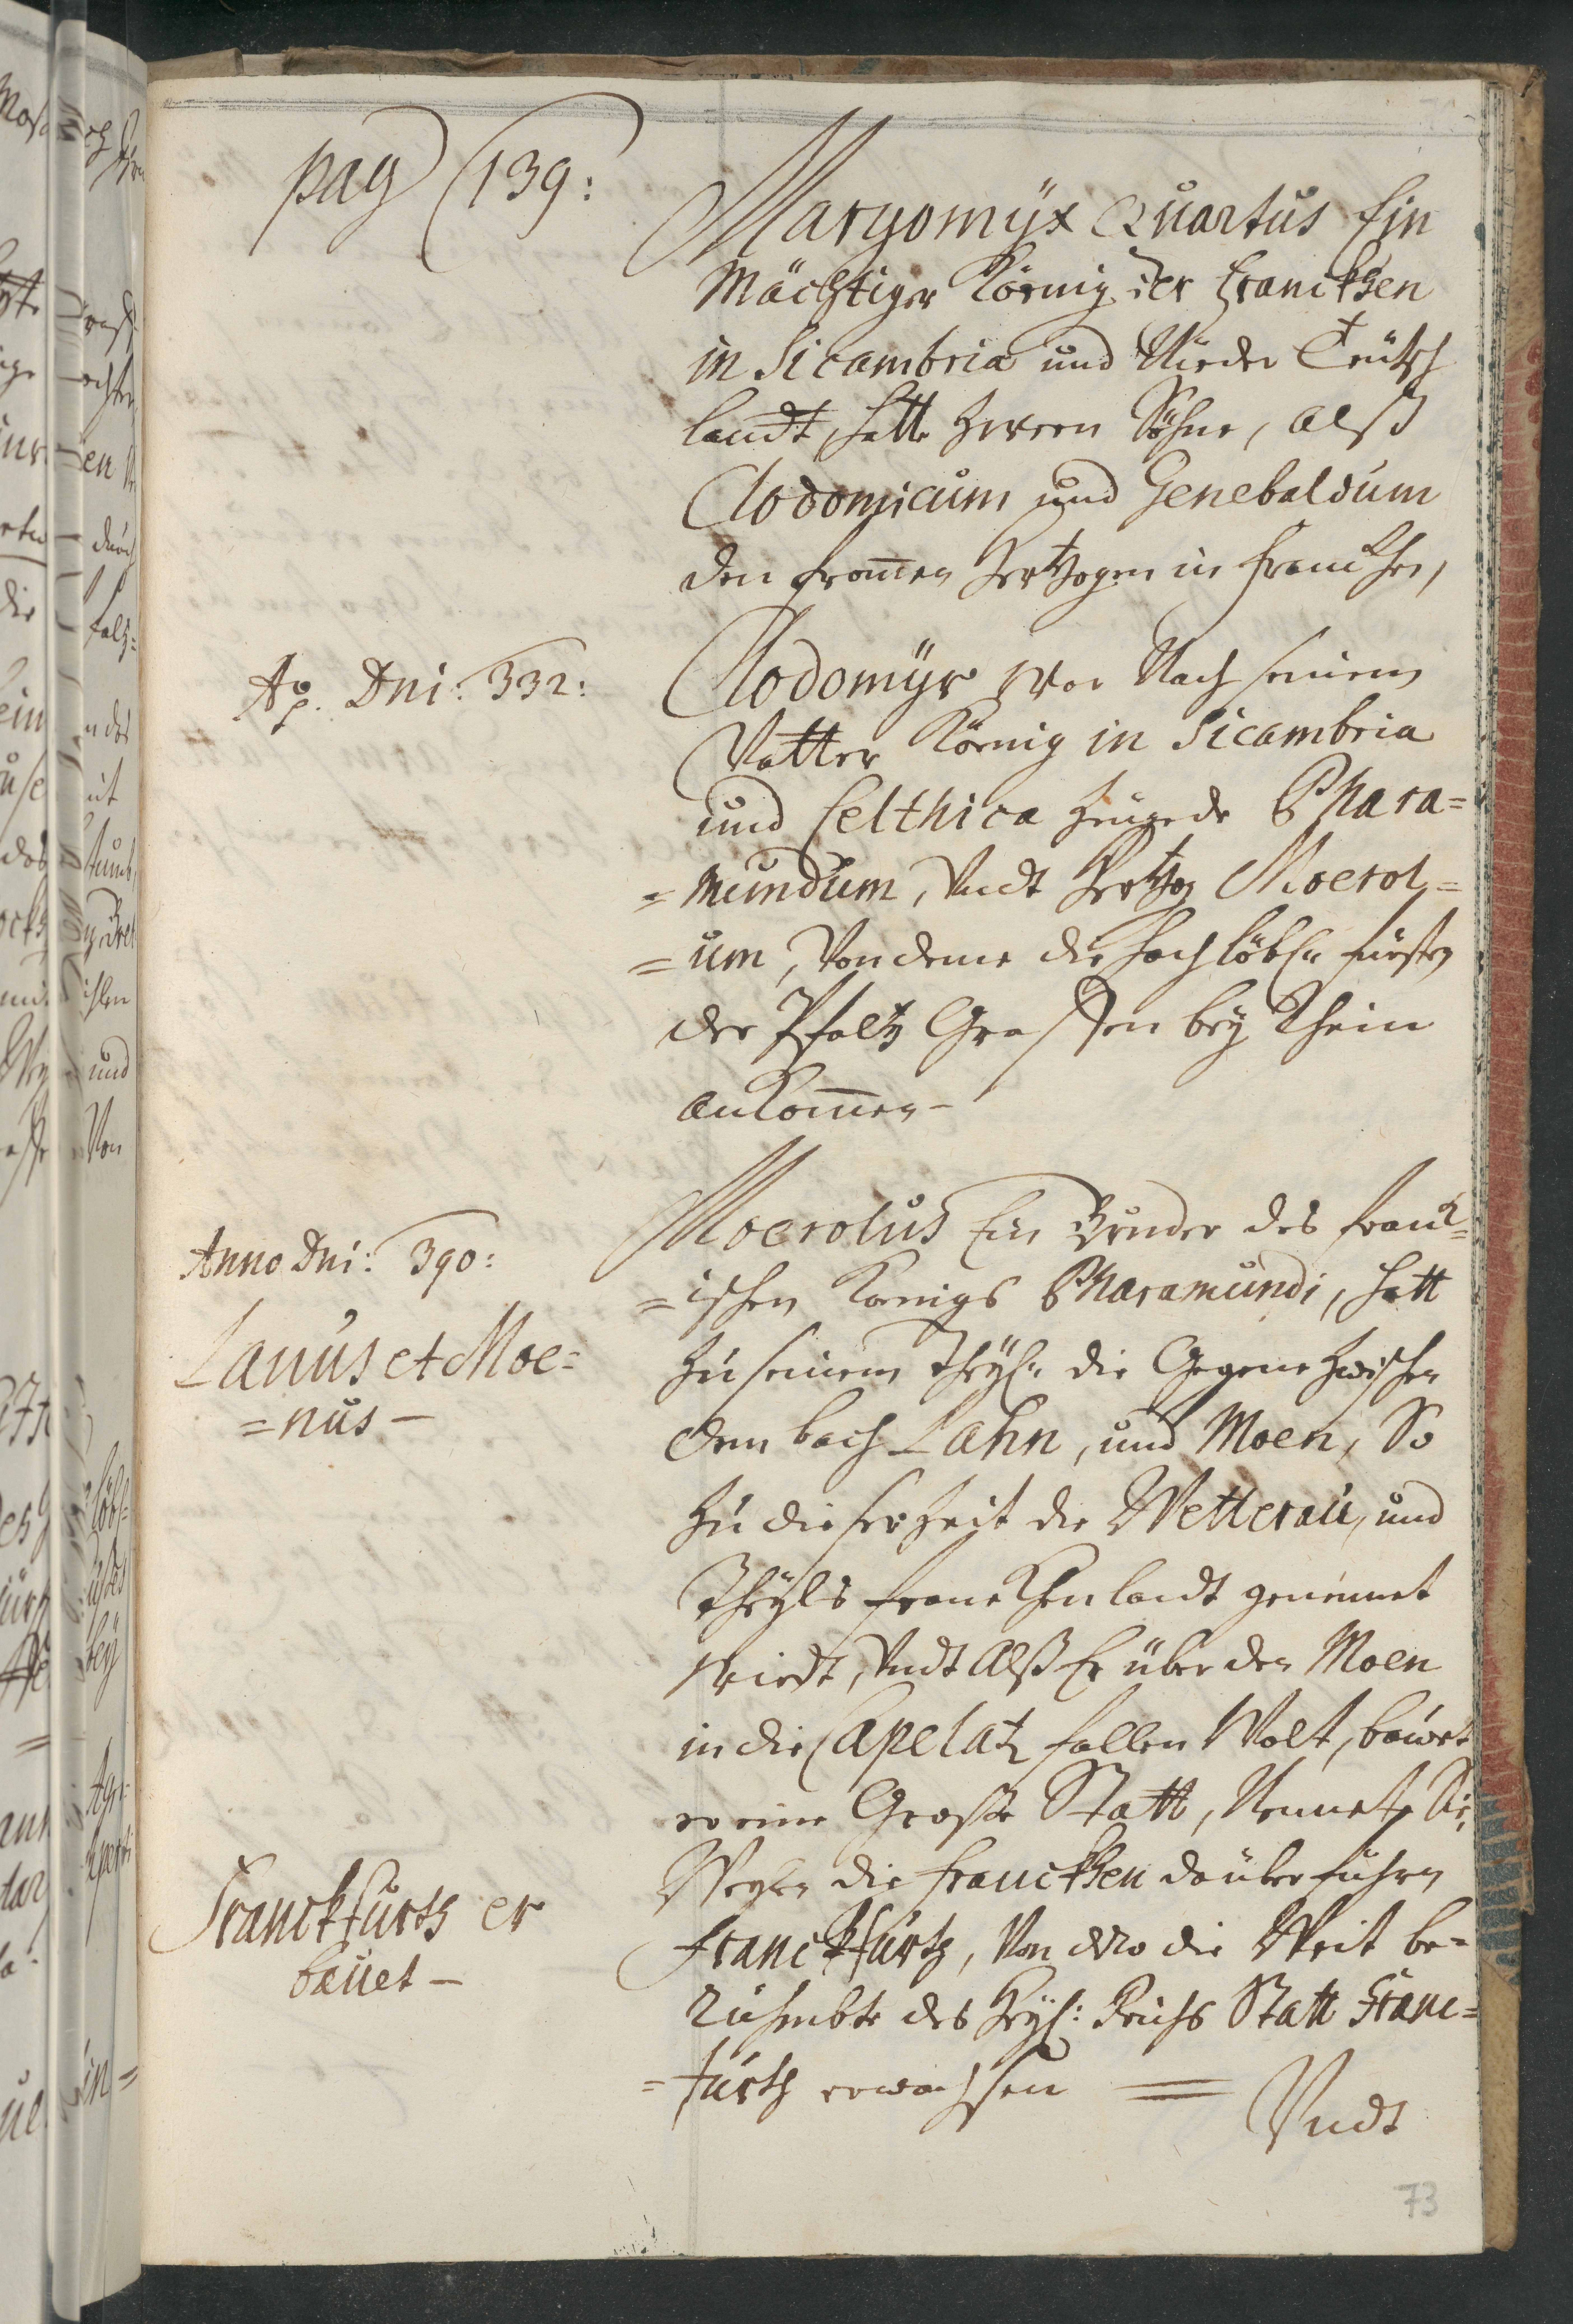 pag 139:
Margomÿx Quartus Ein
Mächtiger König der Franckhen
in Sicambria und Nieder Teütsch
landt, hatte zween Söhne, alß
Clodomicum und Genebaldum
den frommen Hertzogen in Franckhen,
Ao. Dni: 332:
Clodomÿr war Nach seinem
Vatter König in Sicambria
und Celthica zeugede Phara=
=mundum, Vndt Hertzog Moerol=
=um, Von deme die hochlöbl. fürsten
der Pfaltz Graffen bey Rhein
ankommen-
Anno Dni: 390:
Lanus et Moe=
=nus -
Moerolus Ein Bruder des Franck=
=ischen Königs Pharamundi, hatt
zu seinem Theyl die Gegene zwischen
dem bach Lahn, und Moen, So
zu dieser Zeit die Wetterau, und
Theÿls Franckhenlandt genennet
wirdt, Vndt Alß Er über den Moen
in die Capelatz fallen Wolt, bawet
er eine Große Statt, Nennete Sie,
Weylen die Franckhen da über fuhren
Franckfurth er
bauet -
Franckfurth, Von dero die Weit be=
rühmbte des Heyl: Reichs Statt Franc=
=furth erwachsen =
Vndt
73